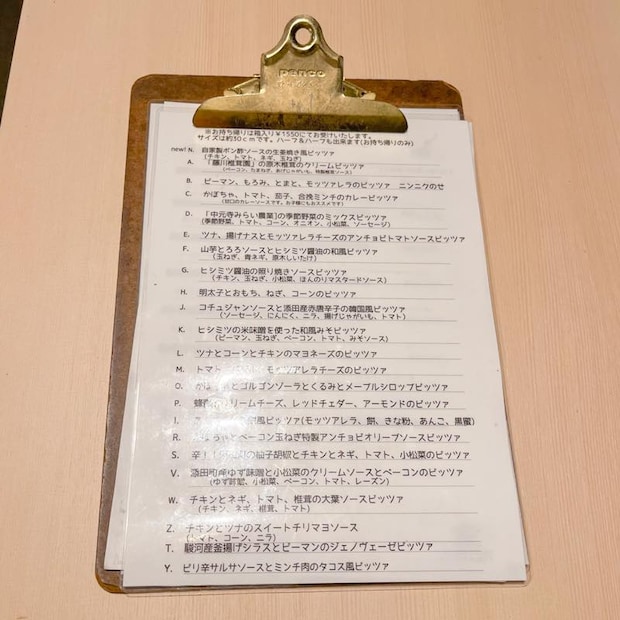 penco
※お持ち帰りは箱入り￥1550にてお受けいたします。
サイズは約30cmです。ハーフ&ハーフも出来ます(お持ち帰りのみ)
new! N. 自家製ポン酢ソースの生姜焼き風ピッツァ
(チキン、トマト、ネギ、玉ねぎ)
A. 「藤川椎茸園」の原木椎茸のクリームピッツァ
(ベーコン、たまねぎ、あげじゃがいも、特製椎茸ソース)
B. ピーマン、もろみ、とまと、モッツァレラのピッツァ ニンニクのせ
C. かぼちゃ、トマト、茄子、合挽ミンチのカレーピッツァ
(甘口のカレーソースです。お子様にもおススメです)
D. 「中元寺みらい農業」の季節野菜のミックスピッツァ
(季節野菜、トマト、コーン、オニオン、小松菜、ソーセージ)
E. ツナ、揚げナスとモッツァレラチーズのアンチョビトマトソースピッツァ
F. 山芋とろろソースとヒシミツ醤油の和風ピッツァ
(玉ねぎ、青ネギ、原木しいたけ)
G. ヒシミツ醤油の照り焼きソースピッツァ
(チキン、玉ねぎ、小松菜、ほんのりマスタードソース)
H. 明太子とおもち、ねぎ、コーンのピッツァ
J. コチュジャンソースと添田産赤唐辛子の韓国風ピッツァ
(ソーセージ、にんにく、ニラ、揚げじゃがいも、トマト)
K. ヒシミツの米味噌を使った和風みそピッツァ
(ピーマン、玉ねぎ、ベーコン、トマト、みそソース)
L. ツナとコーンとチキンのマヨネーズのピッツァ
M. トマト モッツァレラチーズのピッツァ
O. とゴルゴンゾーラとくるみとメープルシロップピッツァ
P. 蜂 クリームチーズ、レッドチェダー、アーモンドのピッツァ
I. 風ピッツァ(モッツアレラ、餅、きな粉、あんこ、黒蜜)
R. かぼちゃとベーコン玉ねぎ特製アンチョビオリーブソースピッツァ
S. 辛 の柚子胡椒とチキンとネギ、トマト、小松菜のピッツァ
V. 添田町産ゆず味噌と小松菜のクリームソースとベーコンのピッツァ
(ゆず味噌、小松菜、ベーコン、トマト、レーズン)
W. チキンとネギ、トマト、椎茸の大葉ソースピッツァ
(チキン、ネギ、椎茸、トマト)
Z. チキンとツナのスイートチリマヨソース
(トマト、コーン、ニラ)
T. 駿河産釜揚げシラスとピーマンのジェノヴェーゼピッツァ
Y. ピリ辛サルサソースとミンチ肉のタコス風ピッツァ